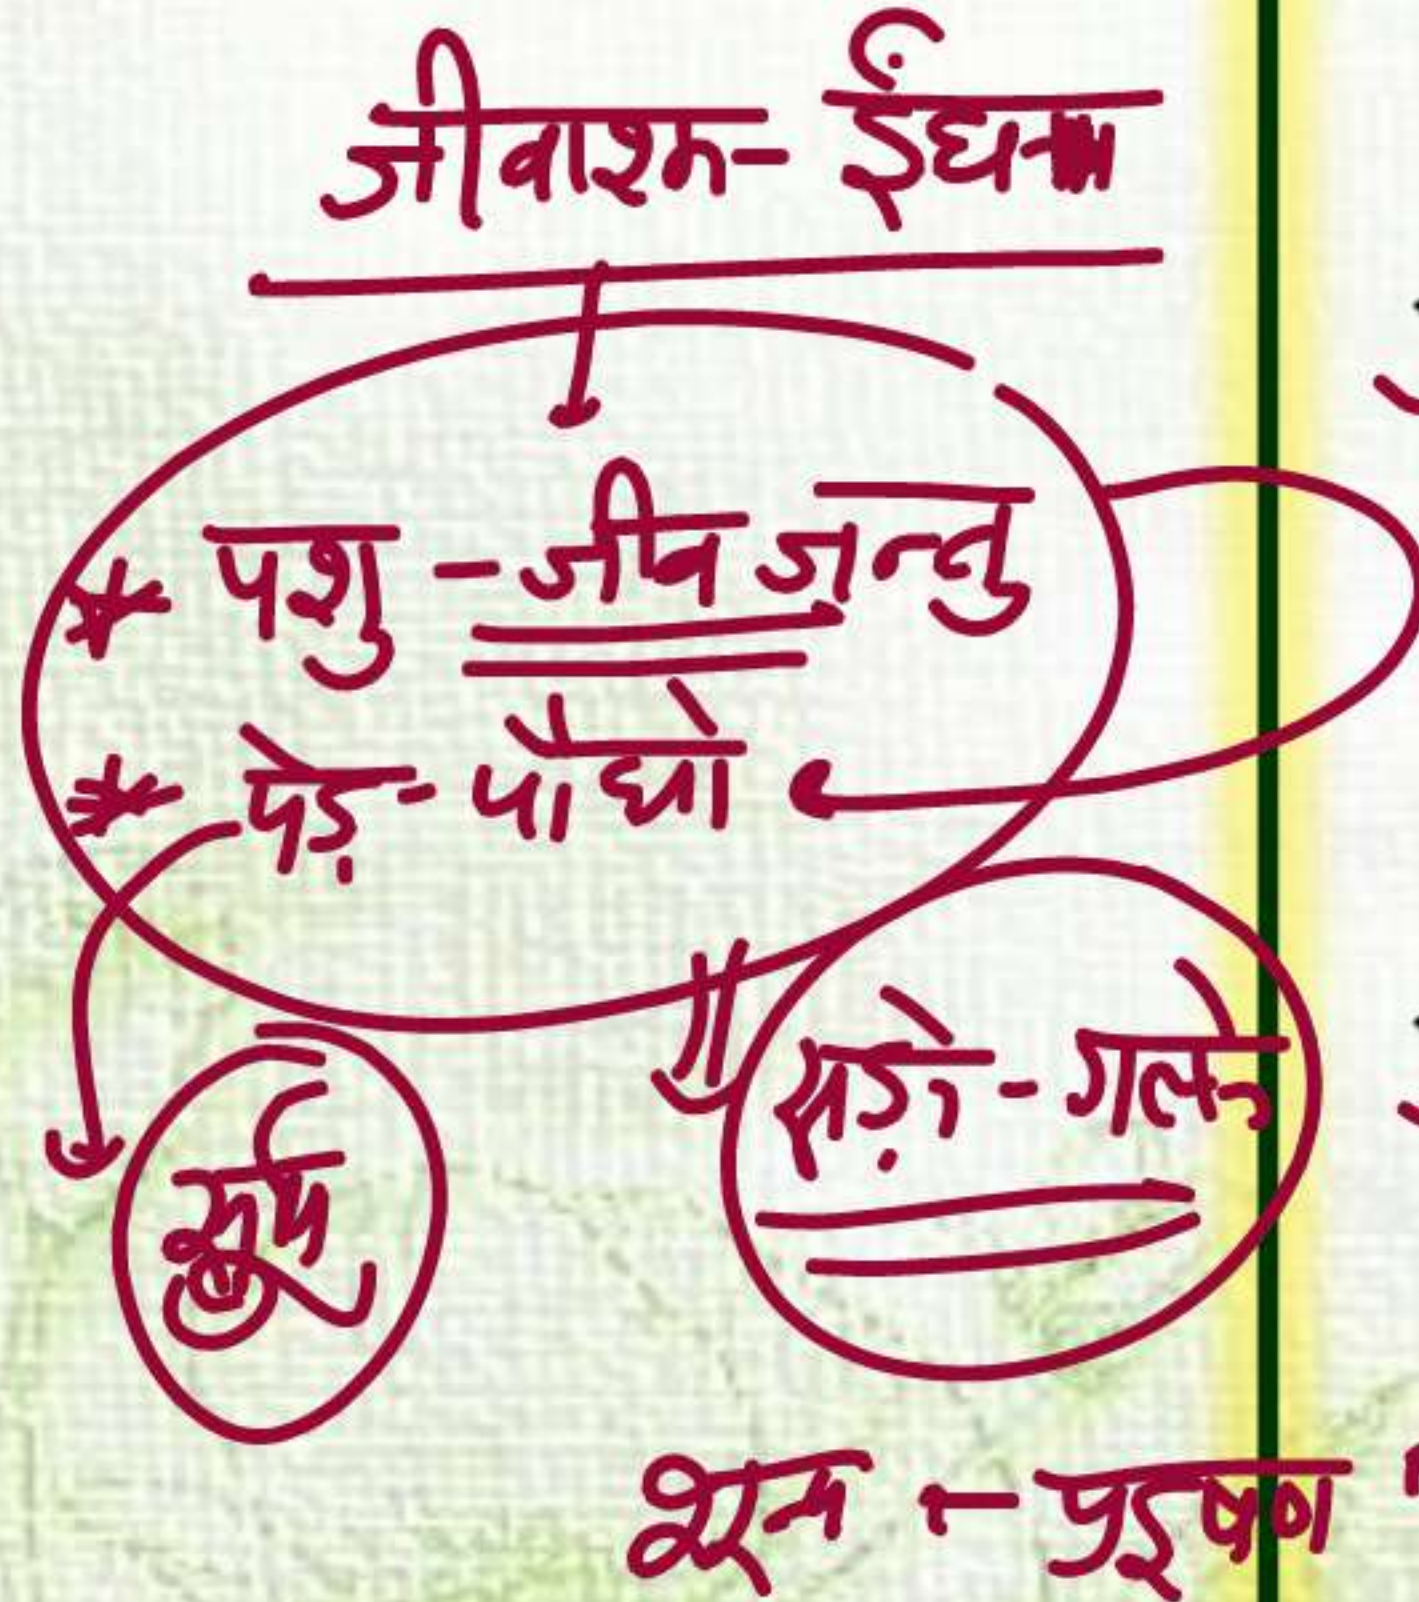 जीवाश्म - ईंधन
* पशु - जीव जन्तु
* पेड़ - पौधो
सड़े - गले
सूर्य
शून्य - प्रदूषण